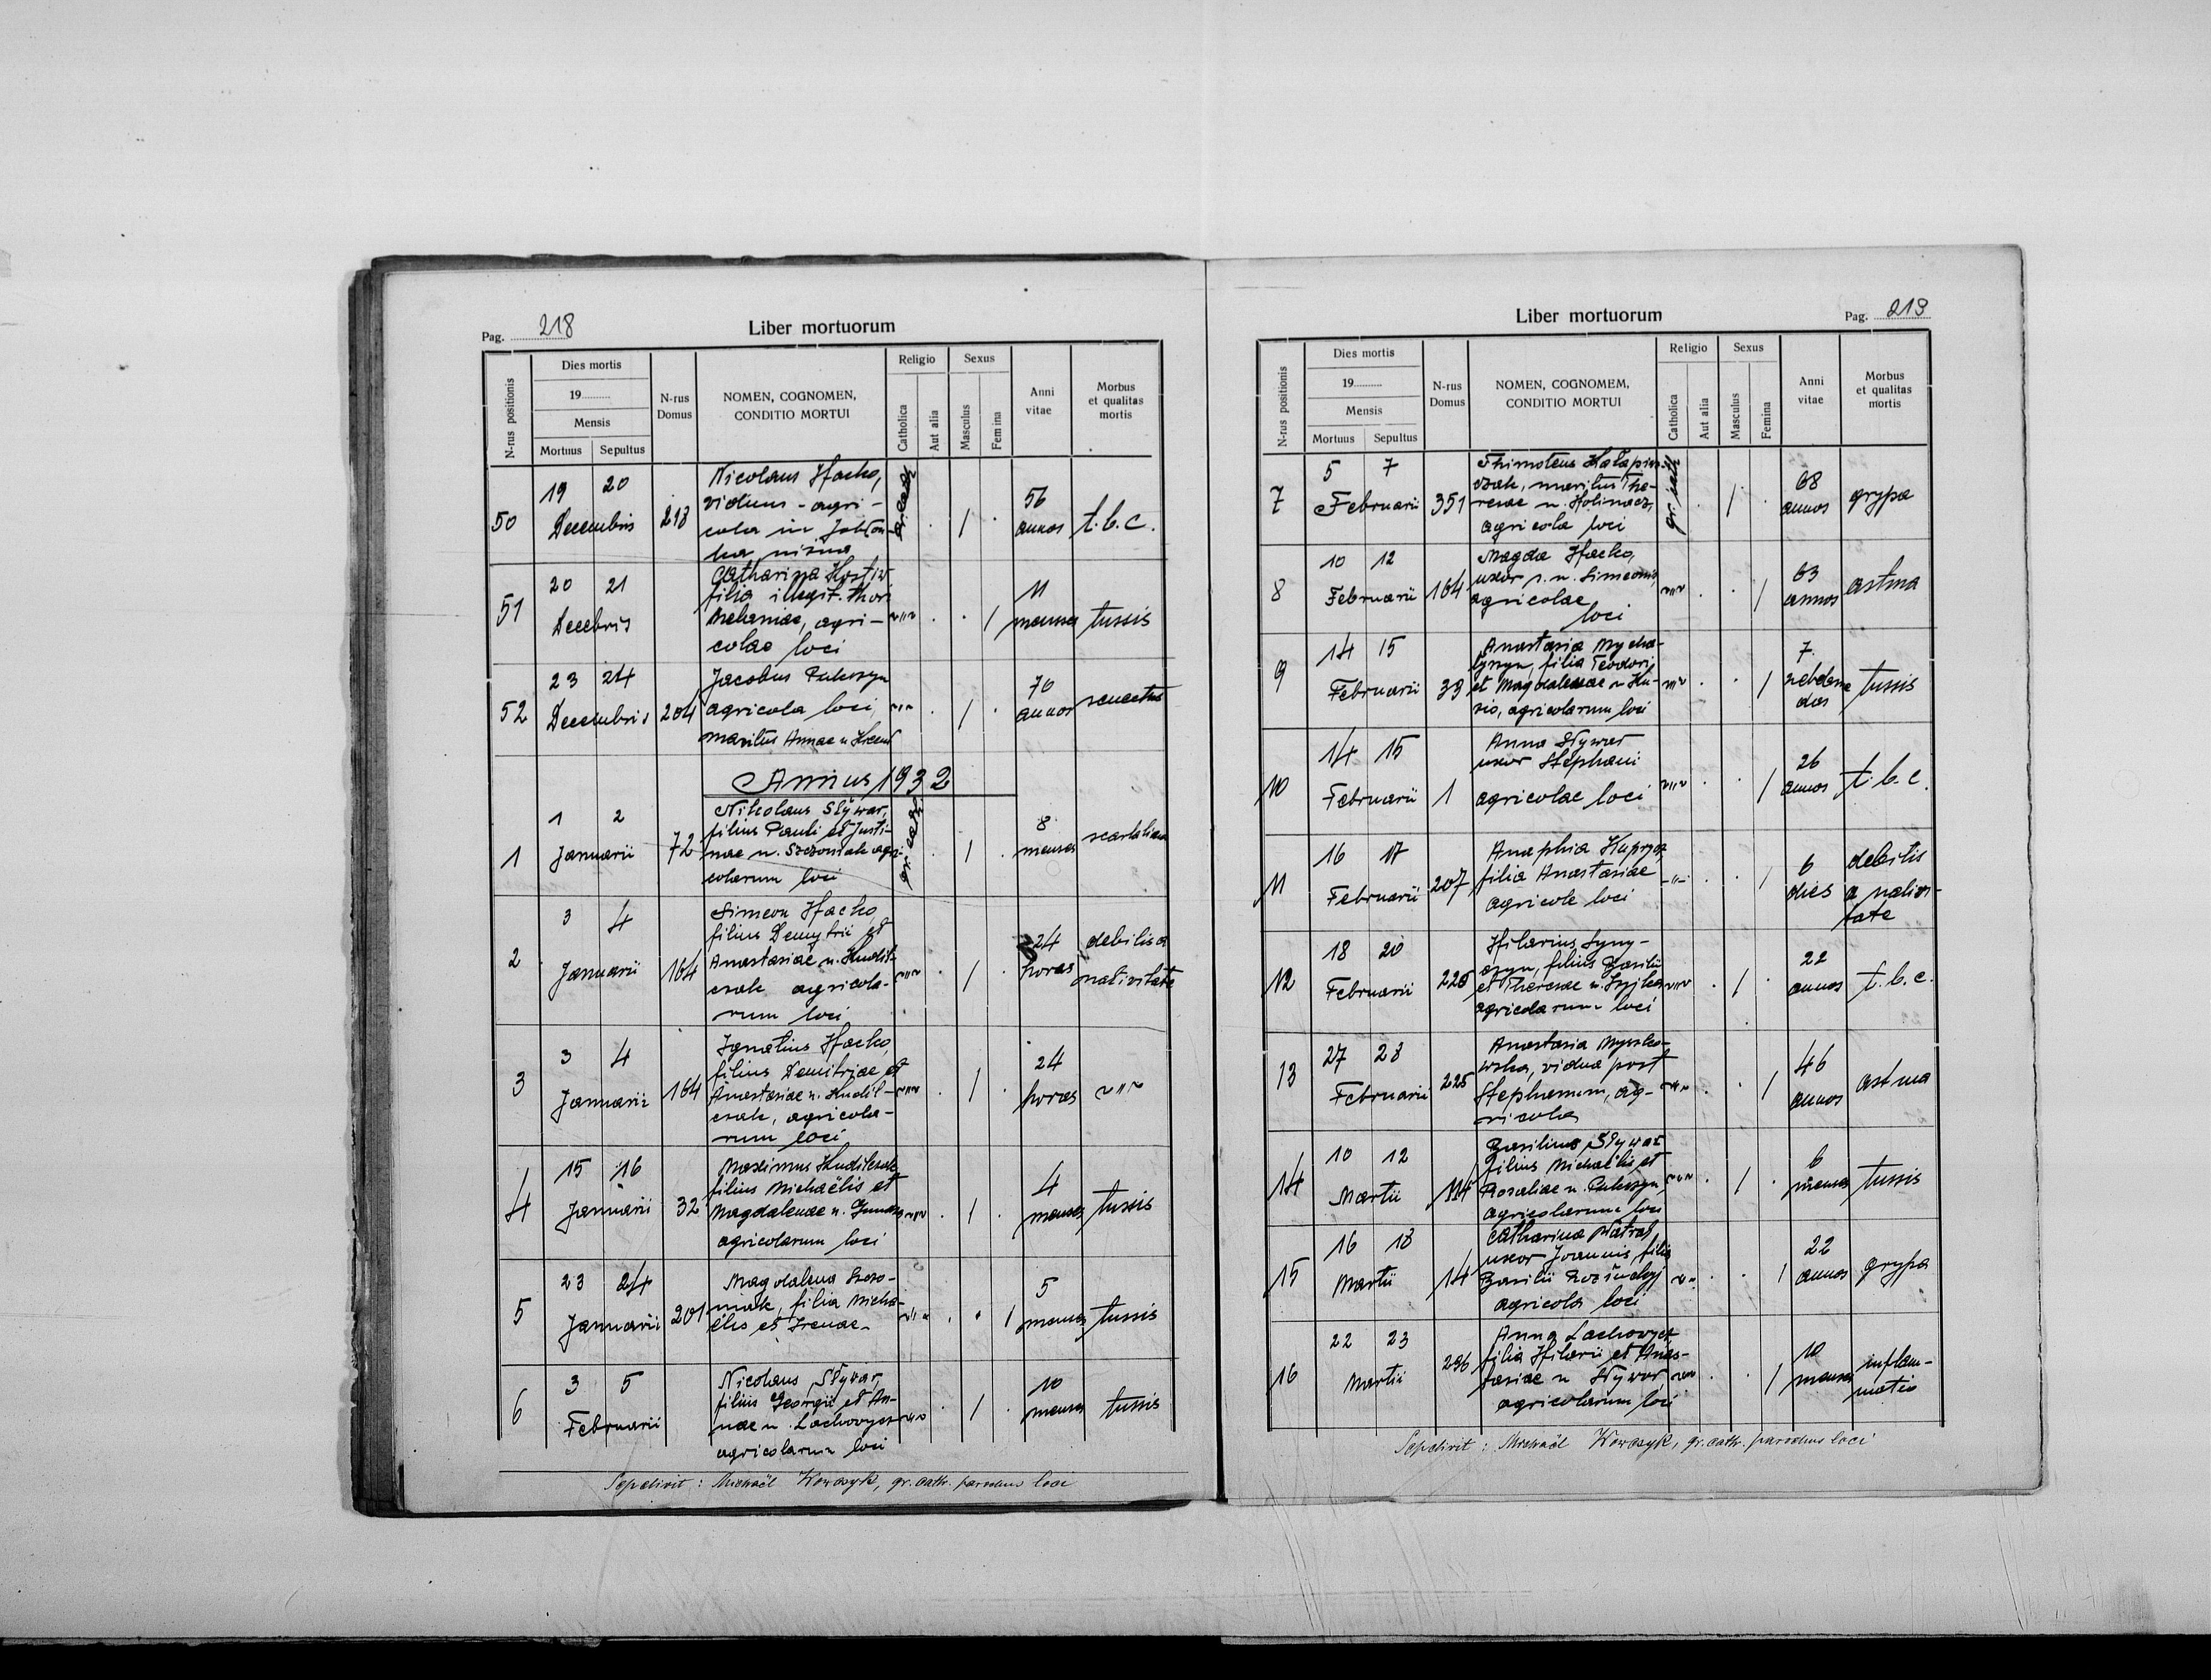 Pag. 218
Liber mortuorum
N-rus positionis
Dies mortis
19
Mensis
Mortuus Sepultus
N-rus Domus
NOMEN, COGNOMEN,
CONDITIO MORTUI
Religio
Catholica
Aut alia
Sexus
Masculus
Femina
Anni vitae
Morbus
et qualitas
mortis
50
19 20
Decembris
213
Nicolaus Hacko,
viduus - agri-
cola in Jabłon
ka niżna
gr. cath
56
annos
t.b.c.
51
20 21
Decebris
Catharina
filia illegit.
Melaniae, agri-
colae loci
11
menses
tussis
52
23 24
Decembris
204
Jacobus Pukszyn
agricola loci,
maritus Annae n
70
annos
senectus
Annus 1932
1
1 2
Januarii
72
Nikolaus Slywar,
filius Pauli et Justi-
nae n. Szezoniak agri-
colarum loci
gr. cath
8
menses
2
3 4
Januarii
164
Simeon Hacko,
filius Demytrii et
Anastasiae n. Hudil-
czak agricola-
rum loci
24
horas
debilis a
nativitate
3
3 4
Januarii
164
Ignatius Hacko,
filius Demitriae et
Anastasiae n. Hudil-
czak, agricola-
rum loci
24
horas
~"~
4
15 16
Januarii
32
Maximus Hudilczak
filius Michaëlis et
Magdalenae n.
agricolarum loci
4
menses
tussis
5
23 24
Januarii
201
Magdalena Szezo-
niak, filia Micha-
ëlis et Irenae
5
menses
tussis
6
3 5
Februarii
Nicolaus Slywar,
filius Georgii et An-
nae n. Lachovycz
agricolarum loci
10
menses
tussis
Sepelivit: Michaël Kowcsyk, gr. cath. parochus loci
Liber mortuorum
Pag. 213
N-rus positionis
Dies mortis
19
Mensis
Mortuus Sepultus
N-rus Domus
NOMEN, COGNOMEM,
CONDITIO MORTUI
Religio
Catholica
Aut alia
Sexus
Masculus
Femina
Anni vitae
Morbus
et qualitas
mortis
7
5 7
Februarii
351
Thimoteus
maritus The-
resae n. Holinacz,
agricola loci
gr. cath
68
annos
grypa
8
10 12
Februarii
164
Magda Hacko,
uxor p. m. Simeonis,
agricolae
loci
63
annos
astma
9
14 15
Februarii
39
Anastasia Mycha-
lyszyn, filia Teodori
et Magdalenae n Hu-
sio, agricolarum loci
7
hebdoma
das
tussis
10
14 15
Februarii
1
Anna Slywar
uxor Stephani
agricolae loci
26
annos
t.b.c.
11
16 17
Februarii
207
Anaphia
filia Anastasiae
agricole loci
6
dies
debilis
a nativi-
tate
12
18 20
Februarii
225
Hilarius Syny-
szyn, filius Basilii
et Theresae n.
agricolarum loci
22
annos
t.b.c.
13
27 28
Februarii
225
Anastasia Myszko-
wska, vidua post
Stephanum, ag-
ricola
46
annos
astma
14
10 12
Martii
114
Basilius Slywar
filius Michaëlis et
Rosaliae n. Pukszyn,
agricolarum loci
6
menses
tussis
15
16 18
Martii
14
Catharina Matras
uxor Joannis, filia
Basilii
agricola loci
22
annos
grypa
16
22 23
Martii
296
Anna Lachovycz
filia Hilarii et Anas-
tasiae n Slywar,
agricolarum loci
10
menses
inflam-
matio
Sepelivit: Michaël Kowcsyk, gr. cath. parochus loci